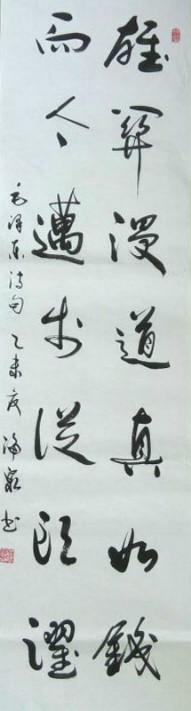 雄關漫道真如鐵
而今邁步從頭躍
毛澤東詩句 乙未夏 海泉書